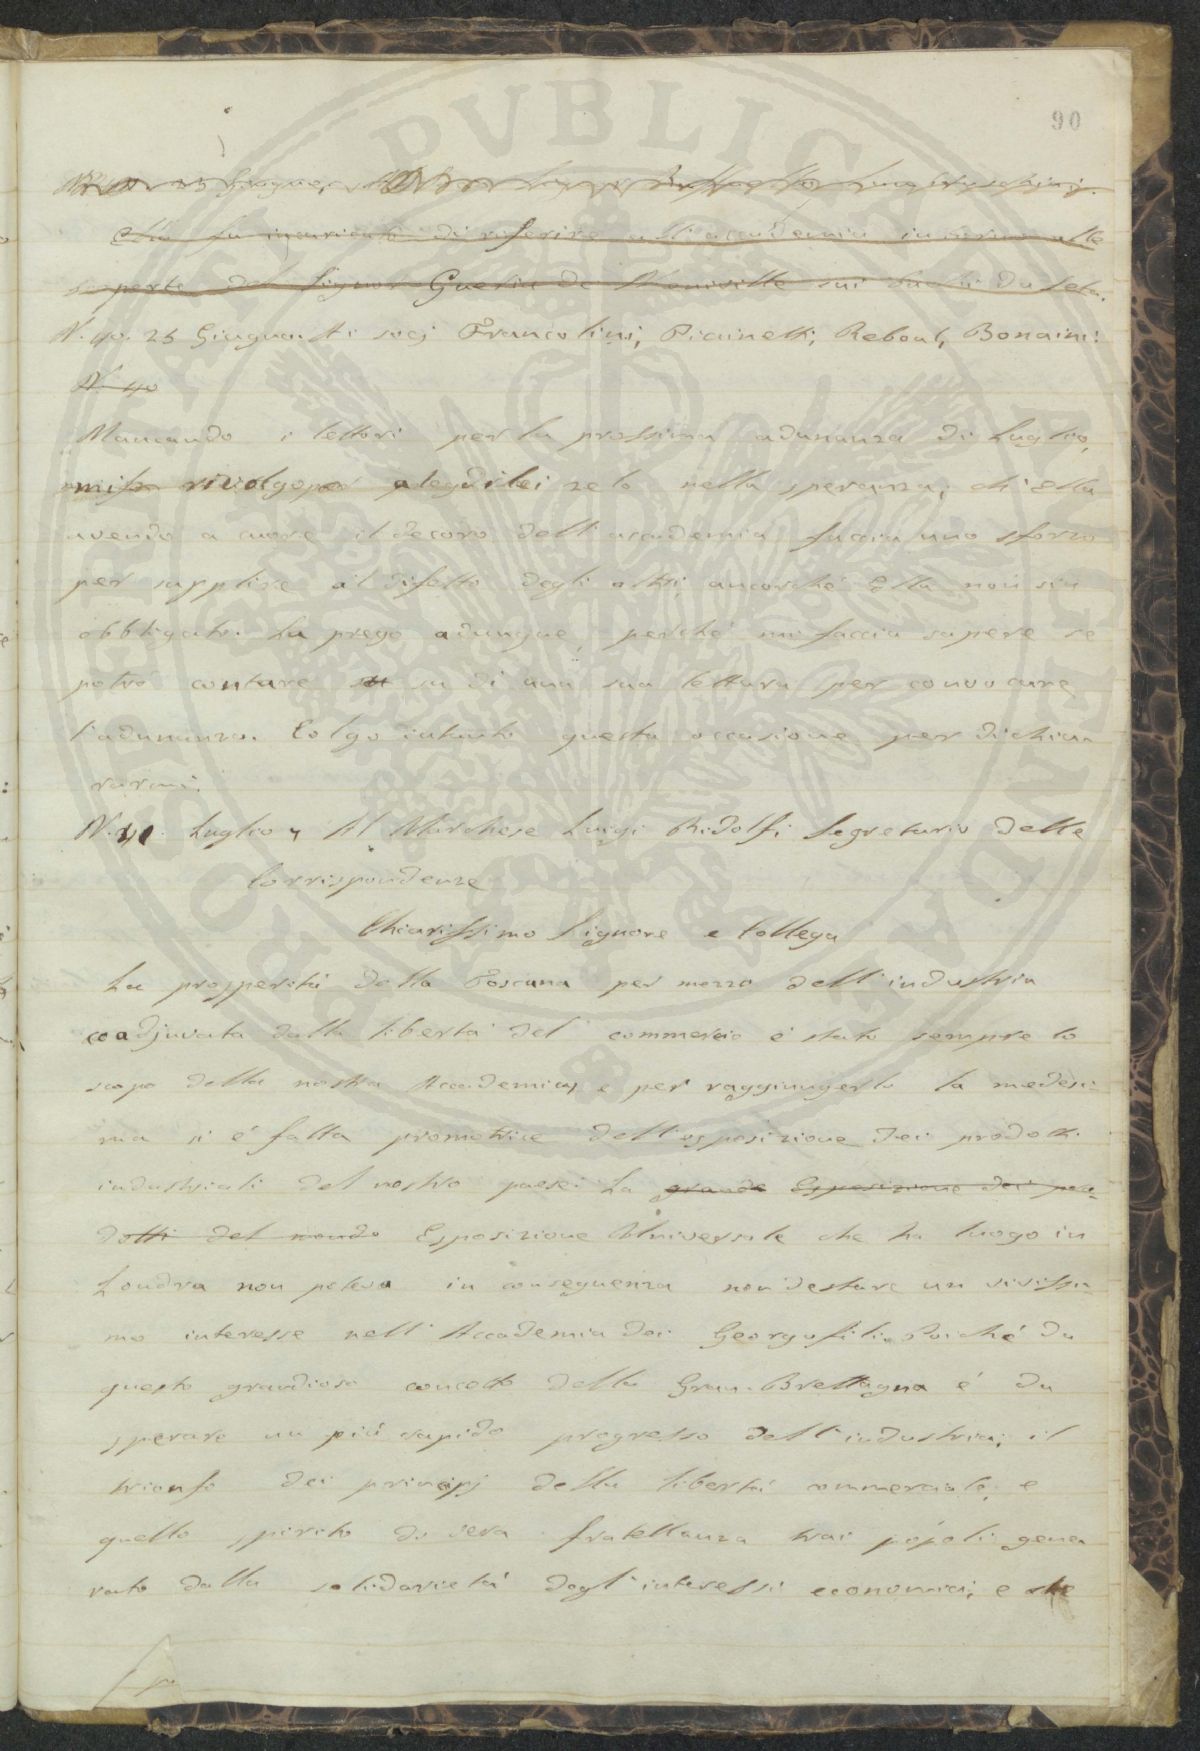 90
25 Giugno
Ella fu incaricato di riferire all'accademia intorno alle
del Signor Guerin de Meneville sui bachi da Seta.
N. 40. 25 Giugno. Ai socj Francolini, Picinetti, Reboul, Bonaini.
N. 40
Mancando i lettori per la prossima adunanza di Luglio,
mi rivolgo al di lei zelo nella speranza, ch'Ella
avendo a cuore il decoro dell'accademia faccia uno sforzo
per supplire al difetto degli altri, ancorché Ella non sia
obbligato. La prego adunque, perché mi faccia sapere se
potrò contare su su di una sua lettura per convocare
l'adunanza. Colgo intanto questa occasione per dichia-
rarmi.
N. 41. Luglio 4 Al Marchese Luigi Ridolfi Segretario delle
Corrispondenze
Chiarissimo Signore e Collega
La prosperità della Toscana per mezzo dell'industria
coadjuvata dalla libertà del commercio é stato sempre lo
scopo della nostra Accademia, e per raggiungerlo la medesi-
ma si é fatta promotrice dell'esposizione dei prodotti
industriali del nostro paese. La grande Esposizione dei pro-
dotti del mondo Esposizione Universale che ha luogo in
Londra non poteva in conseguenza non destare un vivissi-
mo interesse nell'Accademia dei Georgofili. Poiché da
questo grandioso concetto della Gran-Brettagna é da
sperare un più rapido progresso dell'industria; il
trionfo dei principj della libertà commerciale, e
quello spirito di vera fratellanza trai popoli gene
rato dalla solidarietà degl'interessi economici; e che
PVBLICAE